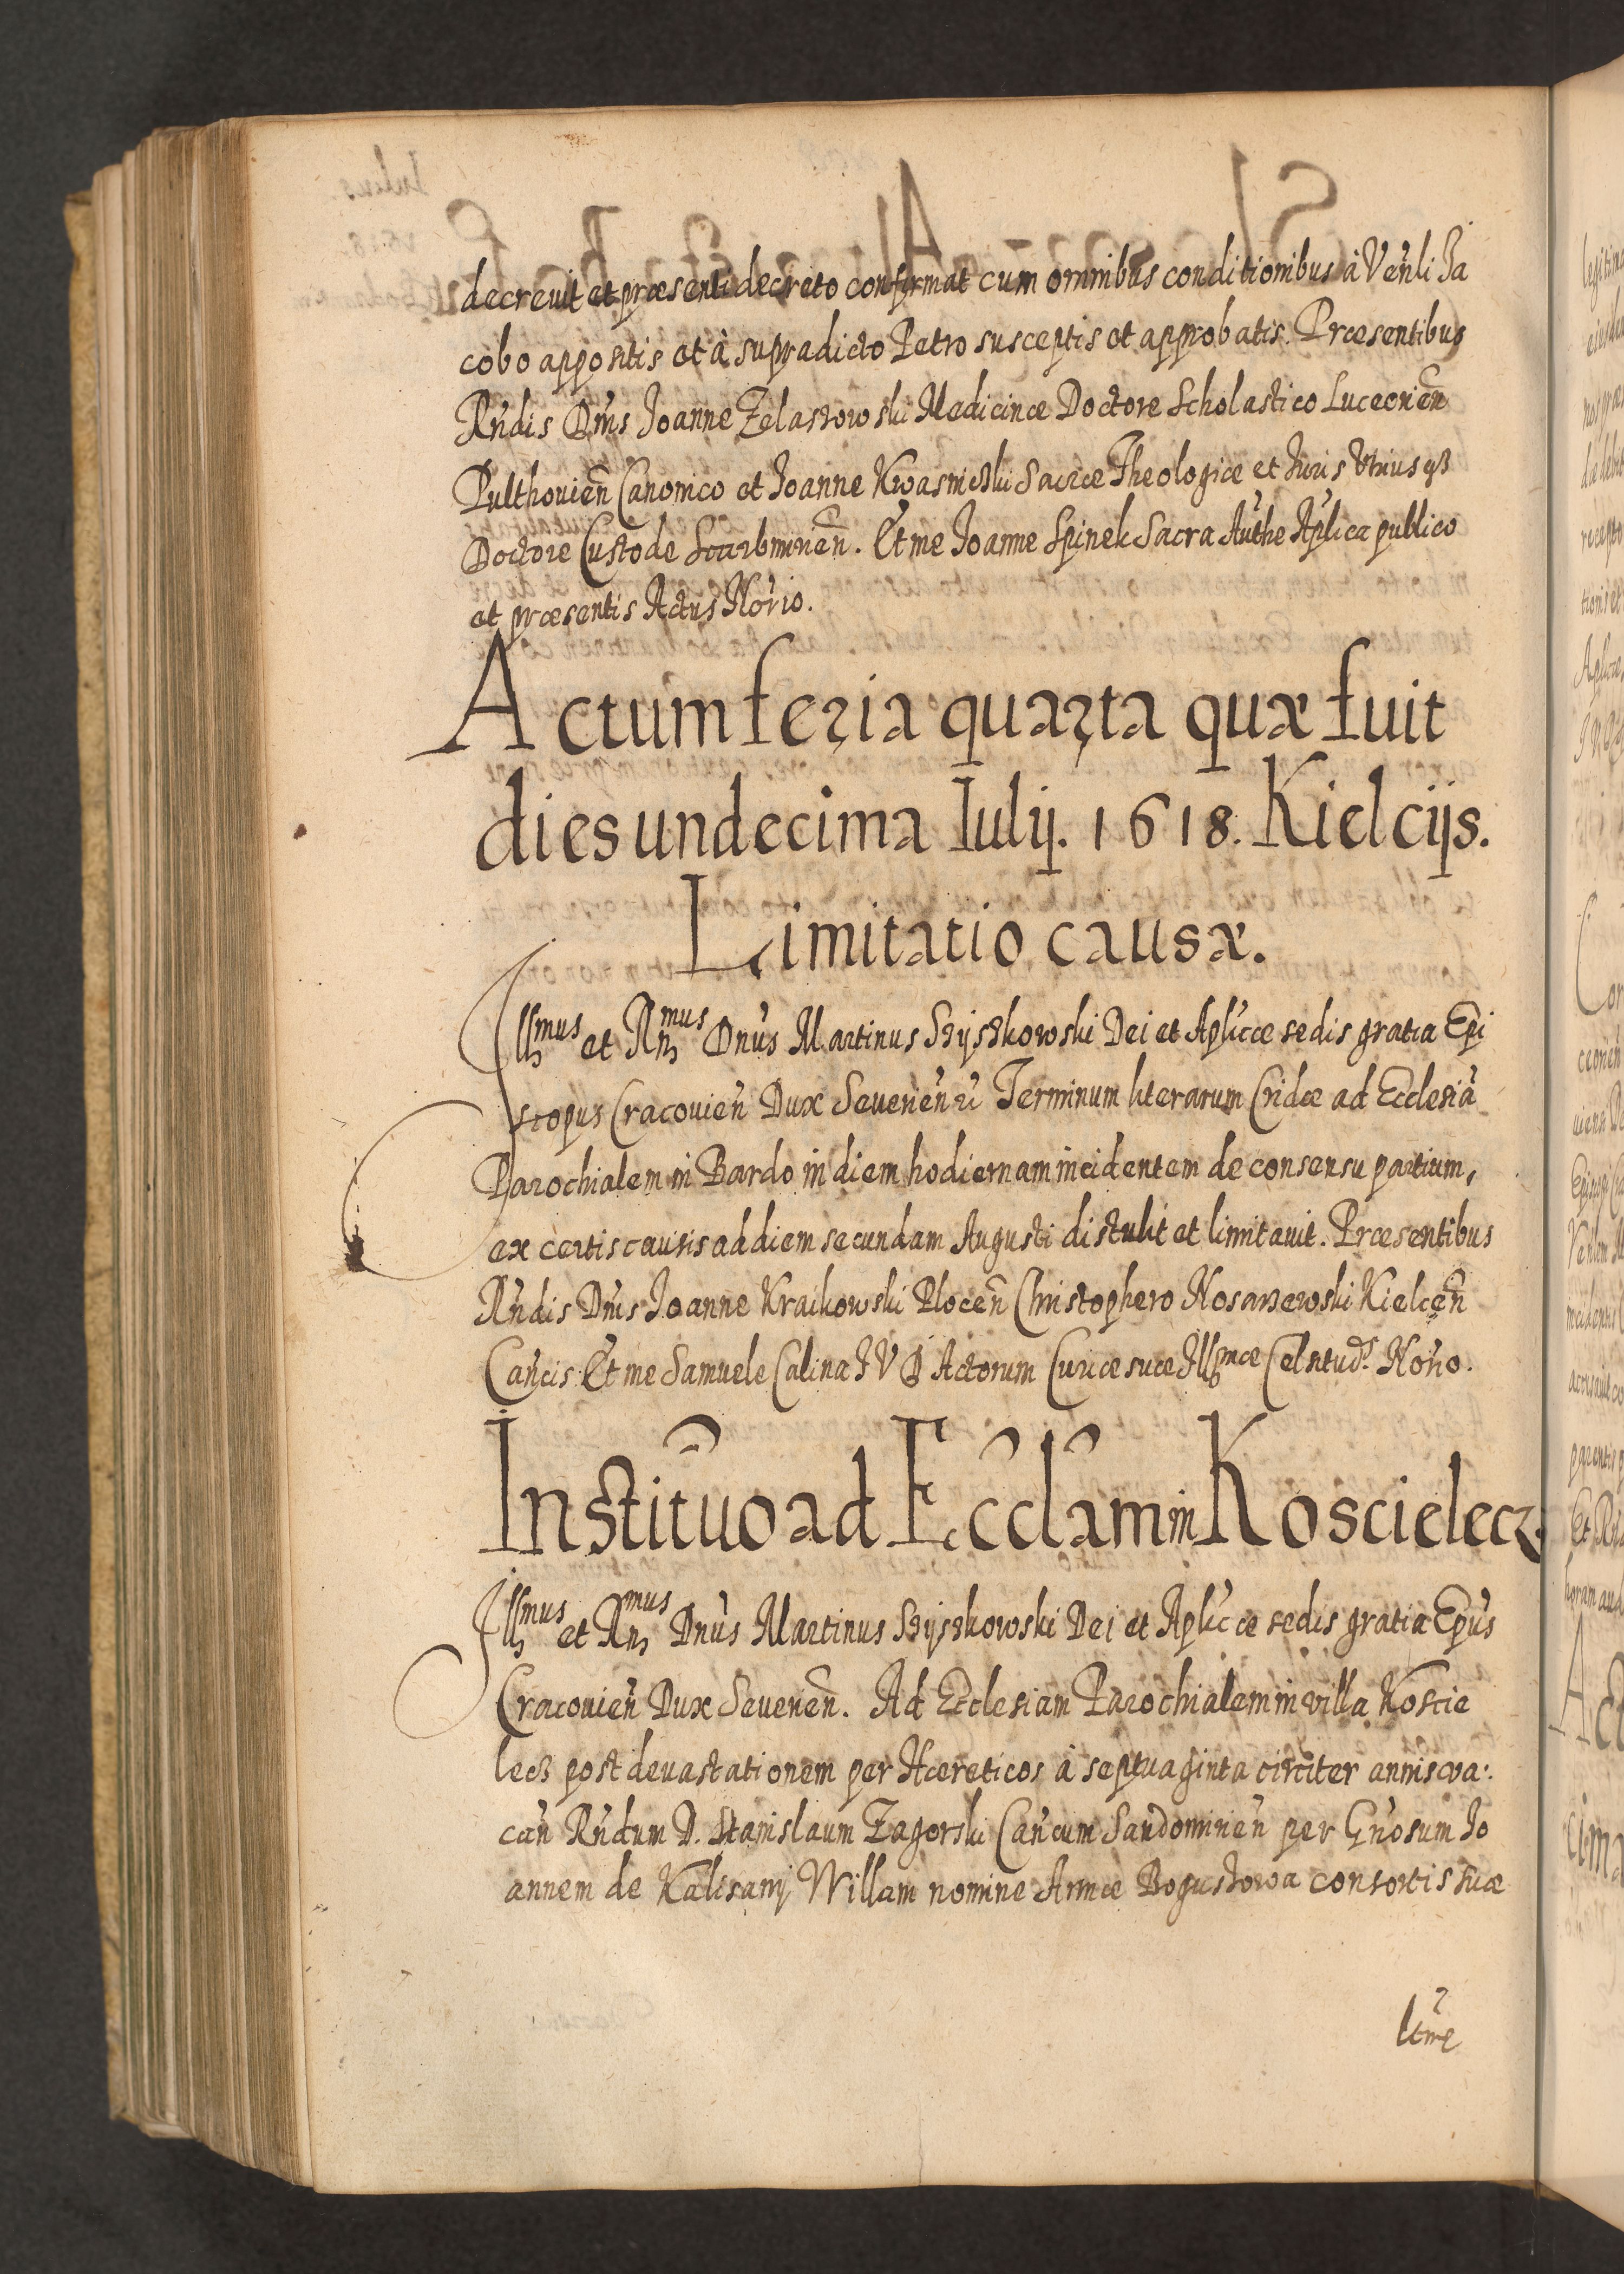 decrevit et præsenti decreto confirmat cum omnibus conditionibus à Veñli Ja
cobo appositis et à supradicto Petro susceptis et approbatis. Præsentibus
Rñdis Dñis Joanne Zelastowski Medicinæ Doctore Scholastico Luceorieñ
Pulthovieñ Canonico et Joanne Kwasniczki Sacræ Theologiæ et Iuris Vtriusqȝ
Doctore Custode Scarbimirieñ. Et me Joanne Spinek Sacra Authe Aplica publico
et præsentis Actus Norio.
Actum feria quarta quæ fuit
dies undecima Iulij. 1618. Kielcijs.
Limitatio causæ.
Illmus et Rmus Dnus Martinus Szyszkowski Dei et Aplicæ sedis gratia Epi
scopus Cracovieñ Dux Severieñ Terminum literarum Cridæ ad Ecclesiã
Parochialem in Bardo in diem hodiernam incidentem de consensu partium,
ex certis causis ad diem secundam Augusti distulit et limitavit. Præsentibus
Rñdis Dñis Joanne Kraikowski Ploceñ Christophero Nosarzewski Kielceñ
Cañcis Et me Samuele Calina J V D Actorum Curiæ suæ Illmæ Celsitud. Norio.
Institũo ad Eccl̃am in Koscielecz.
Illmus et Rmus Dnus Martinus Szyszkowski Dei et Aplicæ sedis gratia Epus
Cracovieñ Dux Severieñ. Ad Ecclesiam Parochialem in villa Koscie
lecz post devastationem per Hæreticos à septuaginta circiter annis va:
cañ Rñdum D. Stanislaum Zagorski Cañcum Sandomirieñ per Gñosum Jo
annem de Kalisany Willam nomine Annæ Bogustowa consortis suæ